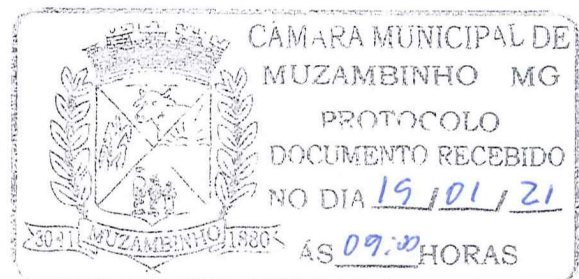 CÂMARA MUNICIPAL DE
MUZAMBINHO MG
PROTOCOLO
DOCUMENTO RECEBIDO
NO DIA 19/01/21
ÁS 09:00 HORAS
MUZAMBINHO
1880